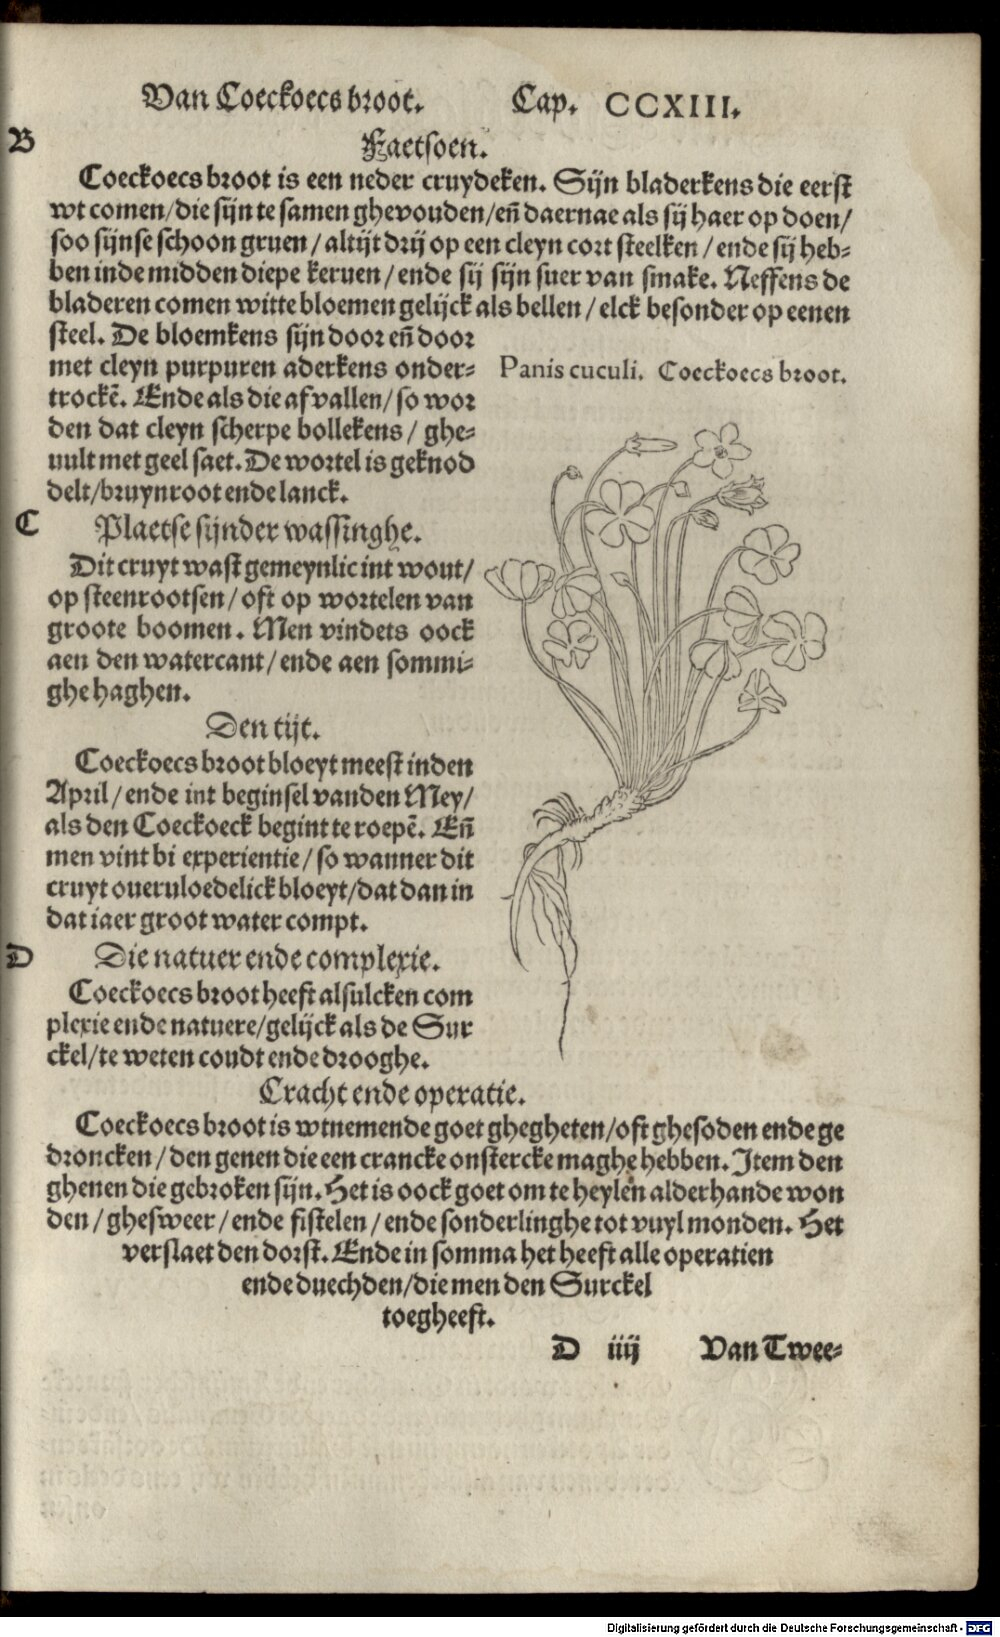 Van Coeckoecs broot. Cap. CCXIII.
B
Faetsoen.
Coeckoecs broot is een neder cruydeken. Sijn bladerkens die eerst
wt comen/die sijn te samen ghevouden/en̄ daernae als sij haer op doen/
soo sijnse schoon gruen/altijt drij op een cleyn cort steelken/ende sij heb⸗
ben inde midden diepe keruen/ende sij sijn suer van smake. Neffens de
bladeren comen witte bloemen gelijck als bellen/elck besonder op eenen
steel. De bloemkens sijn door en̄ door
met cleyn purpuren aderkens onder⸗
trockē. Ende als die afvallen/so wor
den dat cleyn scherpe bollekens/ghe⸗
uult met geel saet. De wortel is geknod
delt/bruynroot ende lanck.
Panis cuculi. Coeckoecs broot.
C
Plaetse sijnder wassinghe.
Dit cruyt wast gemeynlic int wout/
op steenrootsen/oft op wortelen van
groote boomen. Men vindets oock
aen den watercant/ende aen sommi⸗
ghe haghen.
Den tijt.
Coeckoecs broot bloeyt meest inden
April/ende int beginsel vanden Mey/
als den Coeckoeck begint te roepē. En̄
men vint bi experientie/so wanner dit
cruyt oueruloedelick bloeyt/dat dan in
dat iaer groot water compt.
D
Die natuer ende complexie.
Coeckoecs broot heeft alsulcken com
plexie ende natuere/gelijck als de Sur
ckel/te weten coudt ende drooghe.
Cracht ende operatie.
Coeckoecs broot is wtnemende goet ghegheten/oft ghesoden ende ge
droncken/den genen die een crancke onstercke maghe hebben. Item den
ghenen die gebroken sijn. Het is oock goet om te heylen alderhande won
den/ghesweer/ende fistelen/ende sonderlinghe tot vuyl monden. Het
verslaet den dorst. Ende in somma het heeft alle operatien
ende duechden/die men den Surckel
toegheeft.
D iiij Van Twee⸗
Digitalisierung gefördert durch die Deutsche Forschungsgemeinschaft - DFG